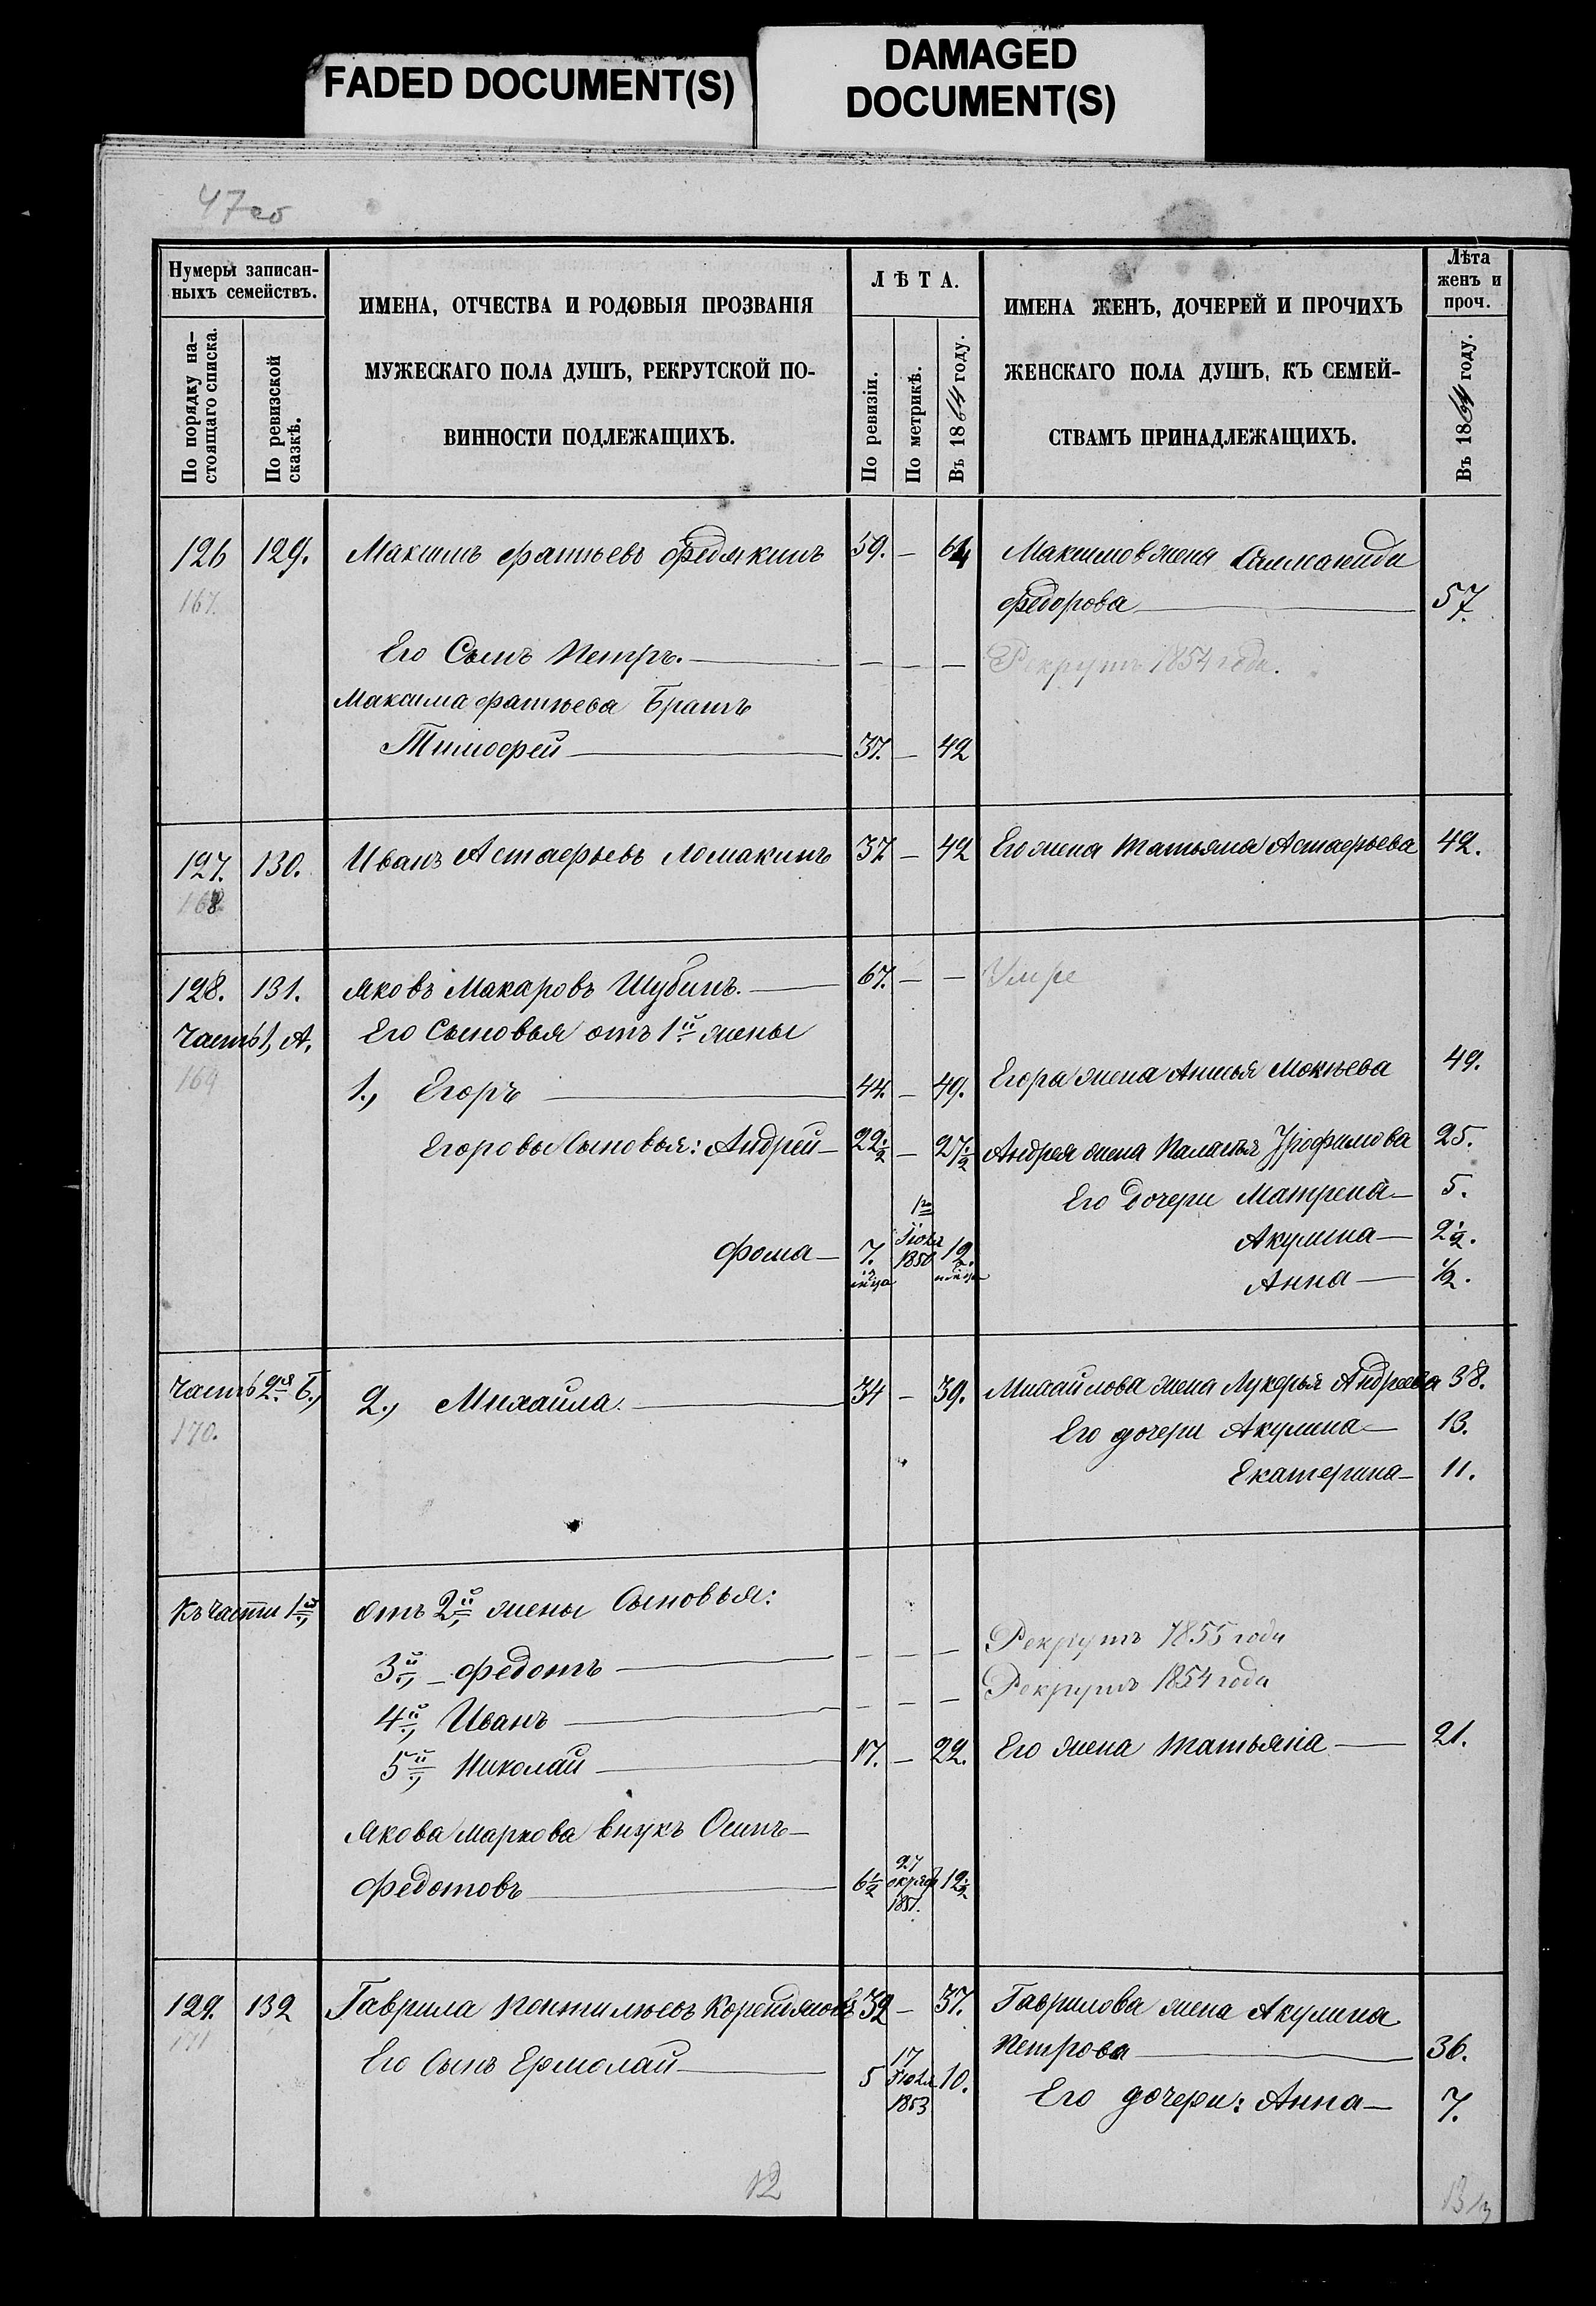 FADED DOCUMENT(S)
DAMAGED
DOCUMENT(S)
47 об
Нумеры записан-
ныхъ семействъ.
По порядку на-
стоящаго списка.
По ревизской
сказкѣ.
ИМЕНА, ОТЧЕСТВА И РОДОВЫЯ ПРОЗВАНІЯ
МУЖЕСКАГО ПОЛА ДУШЪ, РЕКРУТСКОЙ ПО-
ВИННОСТИ ПОДЛЕЖАЩИХЪ.
ЛѢТА.
По ревизіи.
По метрикѣ.
Въ 1864 году.
ИМЕНА ЖЕНЪ, ДОЧЕРЕЙ И ПРОЧИХЪ
ЖЕНСКАГО ПОЛА ДУШЪ, КЪ СЕМЕЙ-
СТВАМЪ ПРИНАДЛЕЖАЩИХЪ.
Лѣта
женъ и
проч.
Въ 1864 году.
126 129. Максимъ Фатѣевъ Федякинъ 59. — 64 Максимов жена
167. Федорова 57.
Его Сынъ Петръ. — — — Рекрутъ 1854 года.
Максима Фатѣева Братъ
Тимофей 37. — 42
127. 130. Иванъ Астафьевъ Ломакинъ 37 — 42 Его жена Татьяна Астафьева 42.
168
128. 131. Яковъ Макаровъ Шубинъ. 67. — — Умре
Часть 1, А. Его Сыновья отъ 1й жены
169 1., Егоръ 44. — 49. Егора жена Анисья Мокѣева 49.
Егоровы Сыновья: Андрей 22 1/2 — 27 1/2 Андрея жена Палагѣя Трофимова 25.
Его дочери Матрена 5.
Фома 7. Іюля 1850 12. Акулина 2 1/2.
Анна 1/2.
Часть 2я Б., 2., Михаила. 34 — 39. Михайлова жена Лукерья Андреева 38.
170. Его дочери Акулина 13.
Екатерина 11.
Къ части 1й, отъ 2й жены Сыновья:
3й, Федотъ — — — Рекрутъ 1855 года
4й, Иванъ — — — Рекрутъ 1854 года
5й, Николай 17. — 22. Его жена Татьяна 21.
Якова Маркова внукъ Осипъ
Федотовъ 6 1/2 27 1851. 12 1/2
129. 132 Гаврила 32 — 37. Гаврилова жена Акулина
171 Петрова 36.
Его Сынъ Ермолай 5 17 Іюля 1853 10. Его дочери: Анна 7.
12